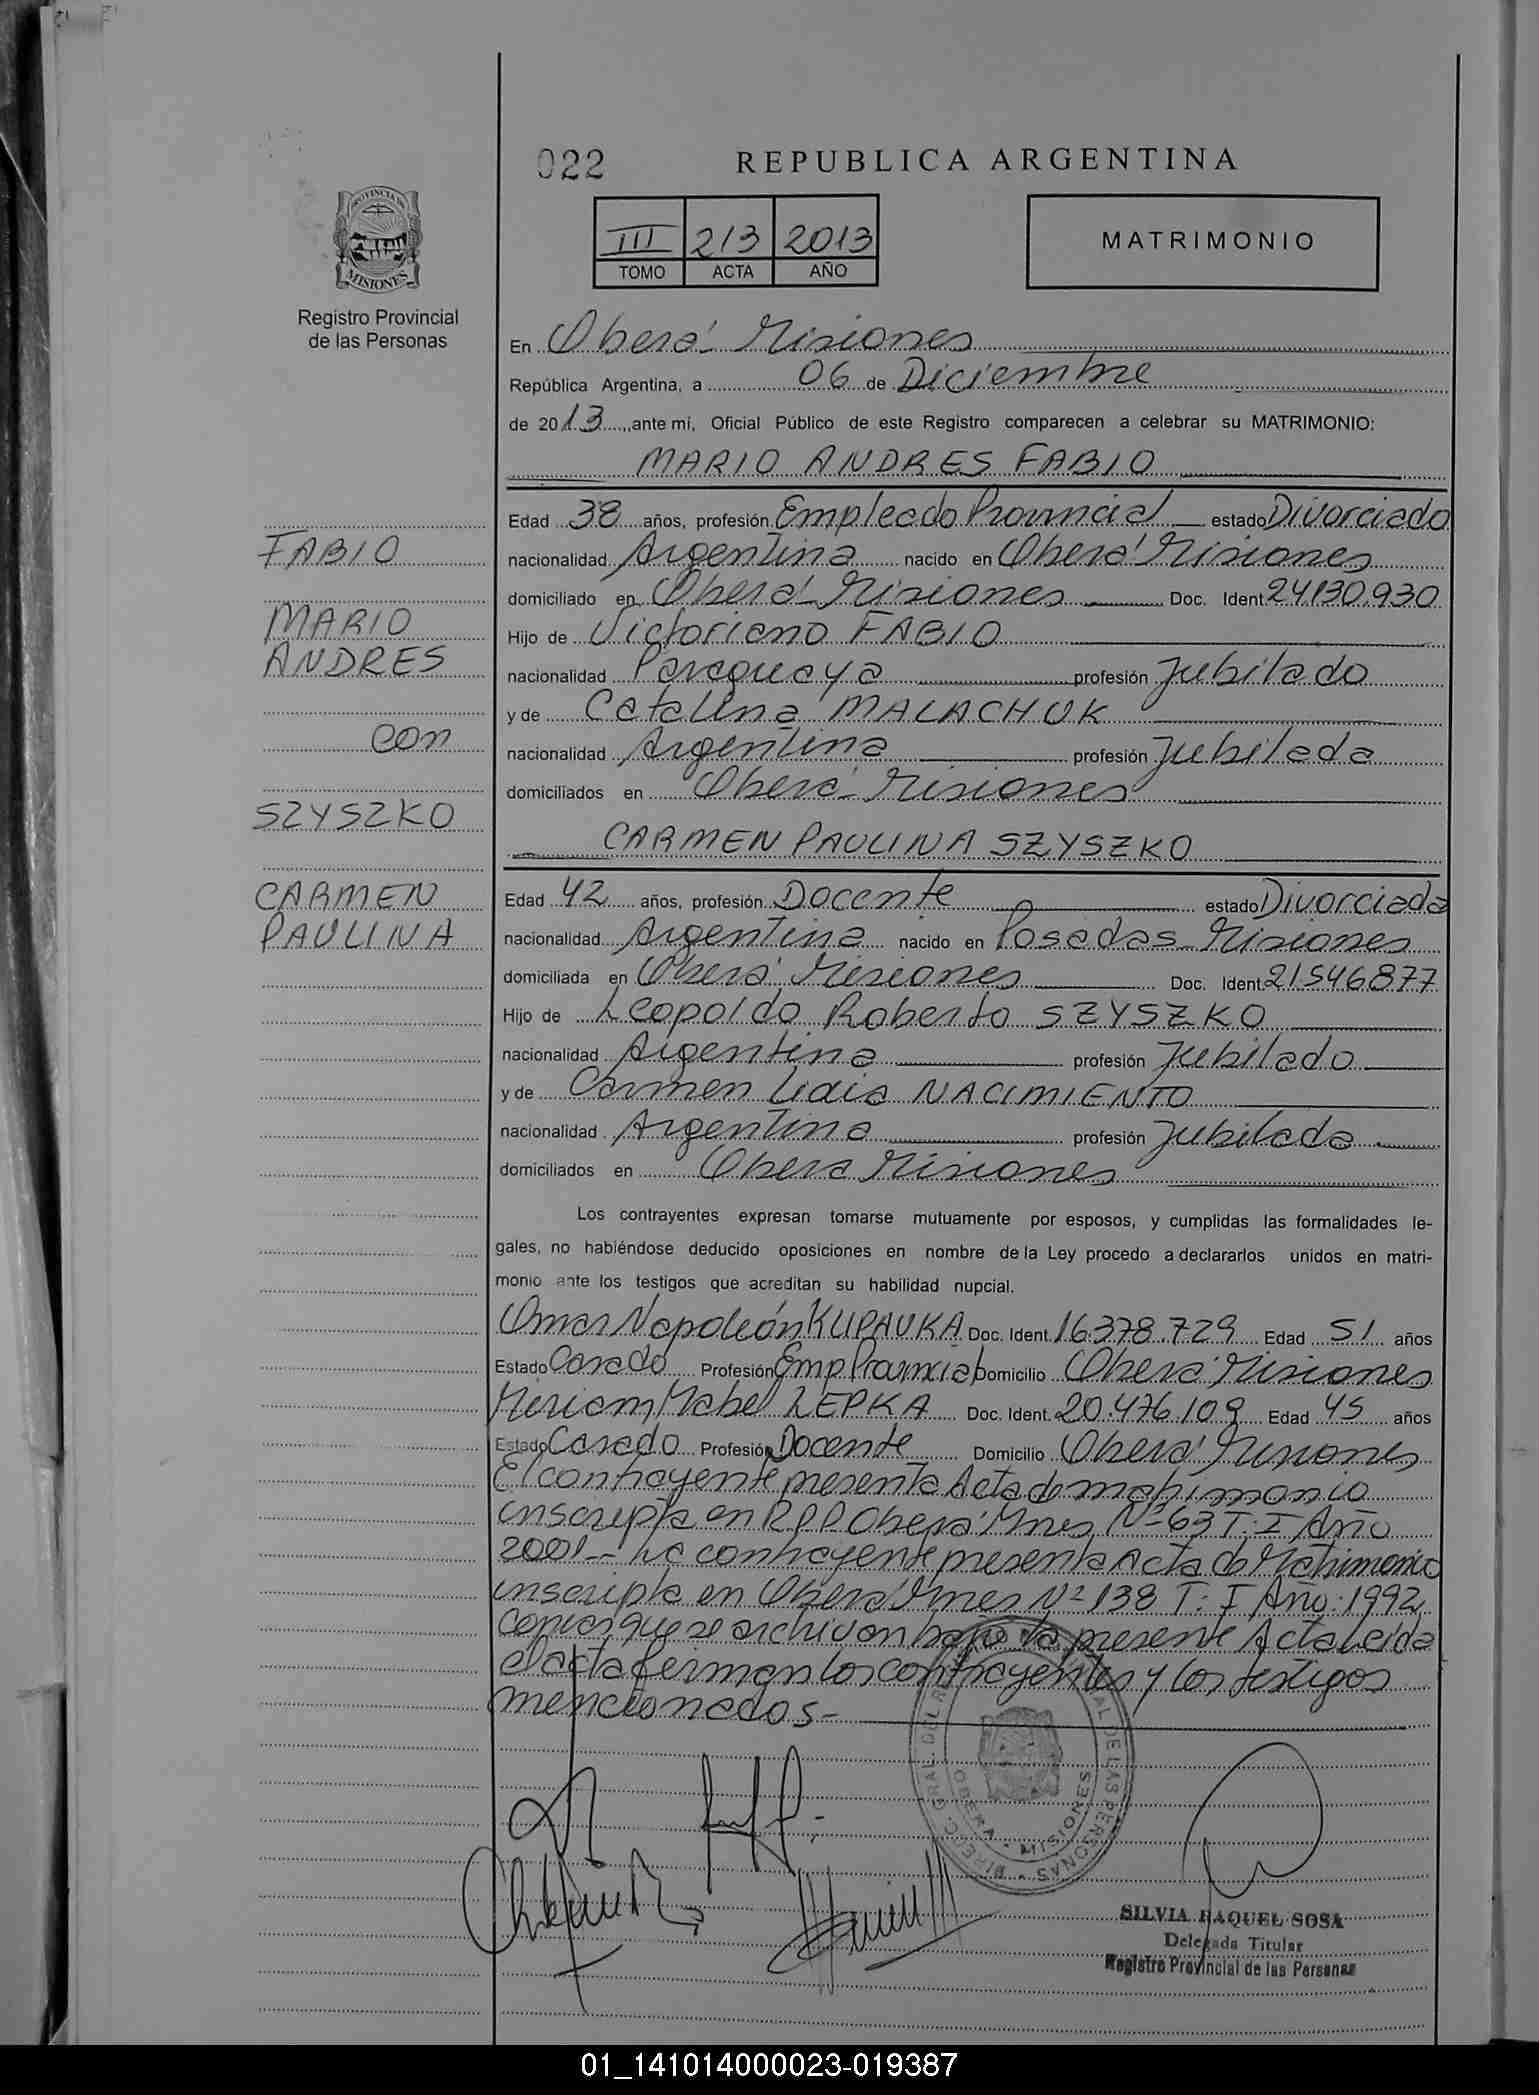 022 REPUBLICA ARGENTINA
III 213 2013
TOMO ACTA AÑO
MATRIMONIO
PROVINCIA DE
MISIONES
Registro Provincial
de las Personas
En Oberá - Misiones
República Argentina, a 06 de Diciembre
de 2013, ante mi, Oficial Público de este Registro comparecen a celebrar su MATRIMONIO:
MARIO ANDRES FABIO
Edad 38 años, profesión Empleado Provincial estado Divorciado
FABIO
nacionalidad Argentina nacido en Oberá Misiones
domiciliado en Oberá - Misiones Doc. Ident 24.130.930
MARIO
Hijo de Victoriano FABIO
ANDRES
nacionalidad Paraguaya profesión Jubilado
y de Catalina MALACHUK
con
nacionalidad Argentina profesión Jubilada
domiciliados en Oberá - Misiones
SZYSZKO
CARMEN PAULINA SZYSZKO
CARMEN
Edad 42 años, profesión Docente estado Divorciada
PAULINA
nacionalidad Argentina nacido en Posadas - Misiones
domiciliada en Oberá, Misiones Doc. Ident. 21546.877
Hijo de Leopoldo Roberto SZYSZKO
nacionalidad Argentina profesión Jubilado
y de Carmen Lidia NACIMIENTO
nacionalidad Argentina profesión Jubilada
domiciliados en Obera Misiones
Los contrayentes expresan tomarse mutuamente por esposos, y cumplidas las formalidades le-
gales, no habiéndose deducido oposiciones en nombre de la Ley procedo a declararlos unidos en matri-
monio ante los testigos que acreditan su habilidad nupcial.
Omar Napoleón KLIPAUKA Doc. Ident. 16.378.729 Edad 51 años
Estado Casado Profesión Emp Provincial Domicilio Oberá Misiones
Miriam Mabel LEPKA Doc. Ident. 20.476.109 Edad 45 años
Estado Casado Profesión Docente Domicilio Oberá Misiones
El contrayente presenta Acta de matrimonio
inscripta en R.P.P. Oberá Mnes Nº 63 T: I Año
2001.- La contrayente presenta Acta de Matrimonio
inscripta en Oberá Mnes Nº 138 T: I Año: 1992,
copias que se archivan bajo la presente Acta Leida
el acta firman los contrayentes y los testigos
mencionados -
DIRECC. GRAL. DEL REG. PROVINCIAL DE LAS PERSONAS
OBERA - MISIONES
SILVIA RAQUEL SOSA
Delegada Titular
Registro Provincial de las Personas
01_141014000023-019387